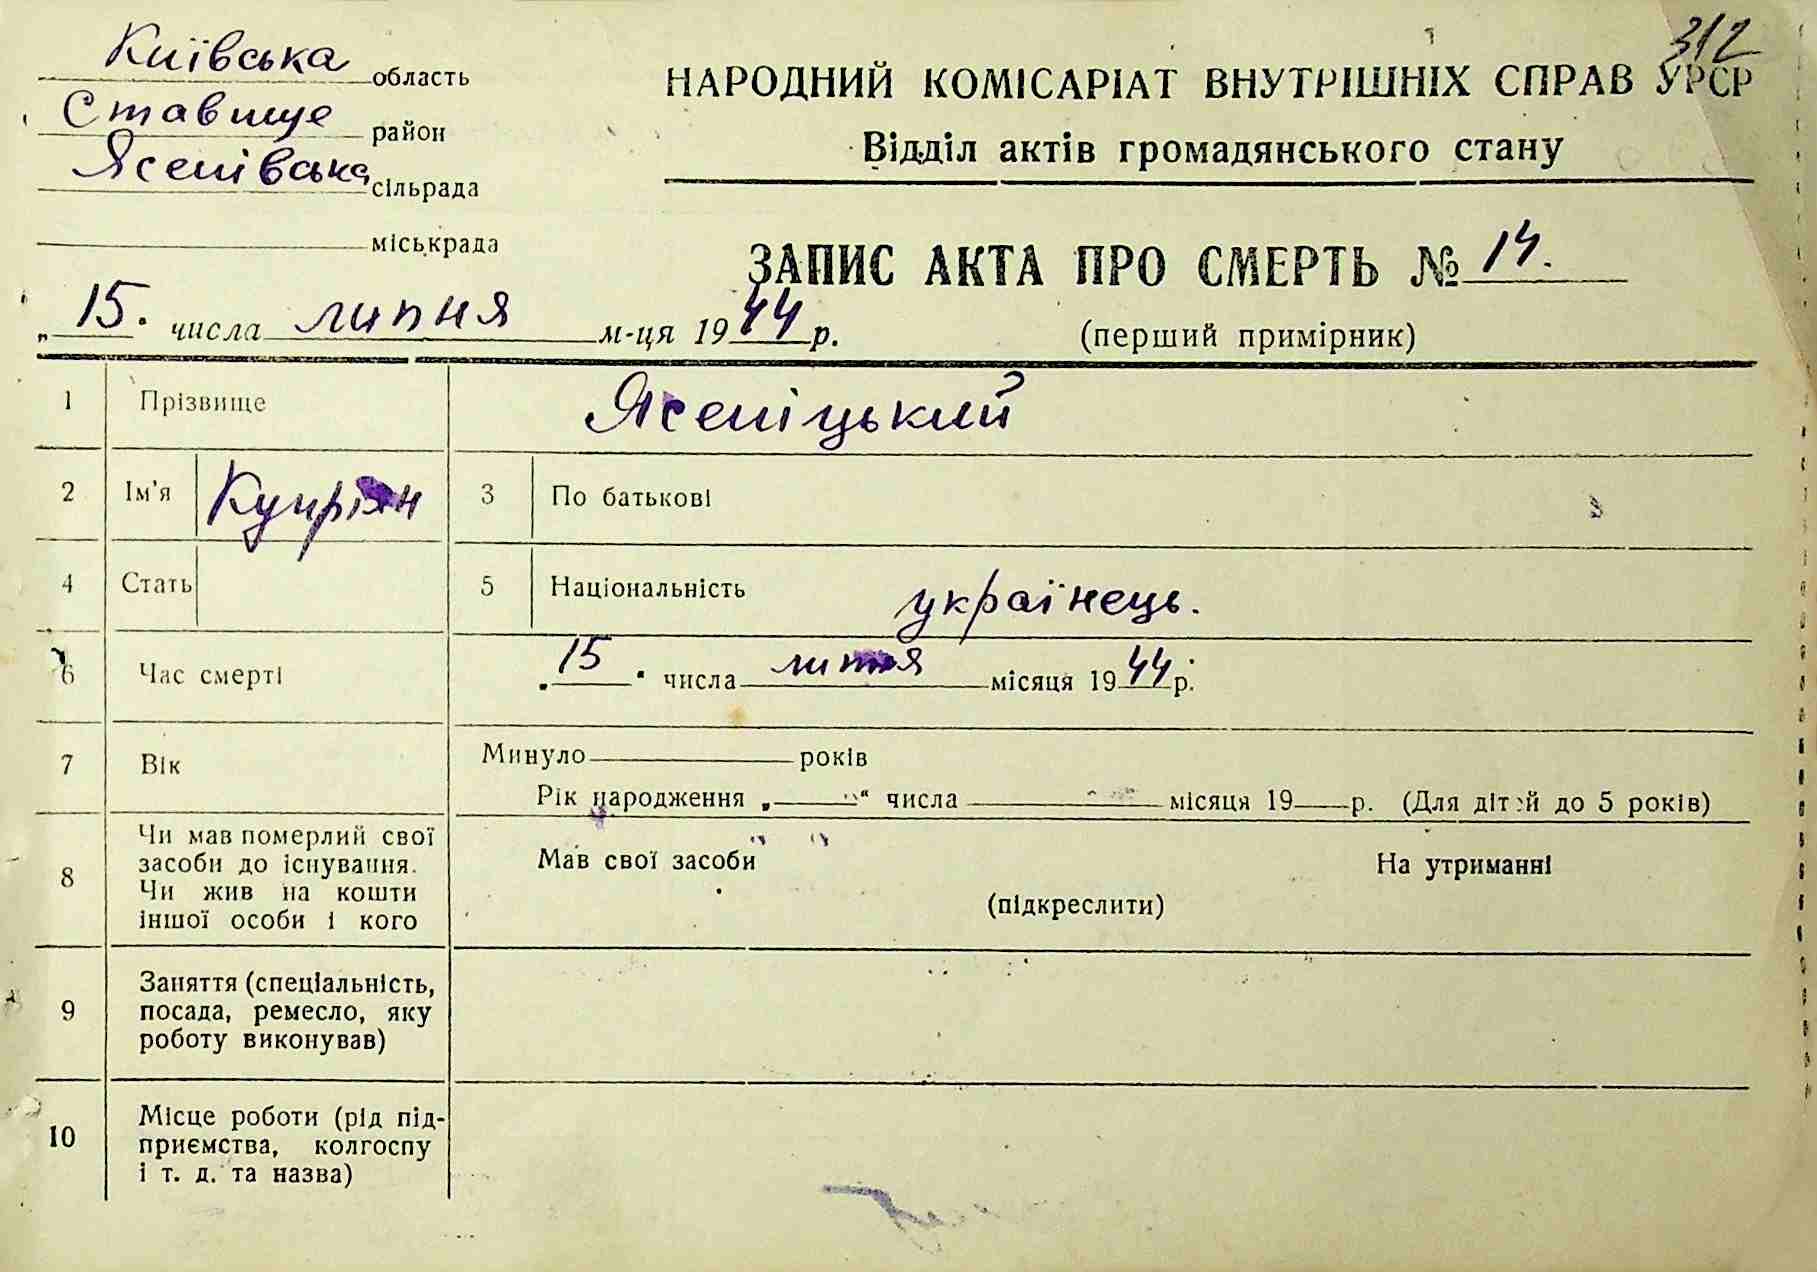 312
Київська область
Ставище район
Ясенівська сільрада
міськрада
НАРОДНИЙ КОМІСАРІАТ ВНУТРІШНІХ СПРАВ УРСР
Відділ актів громадянського стану
ЗАПИС АКТА ПРО СМЕРТЬ № 14.
„15." числа липня м-ця 1944 р.
(перший примірник)
1 Прізвище Ясеніцький
2 Ім'я Купріян 3 По батькові
4 Стать 5 Національність українець.
6 Час смерті „15" числа липня місяця 1944 р.
7 Вік Минуло років
Рік народження „ “ числа місяця 19 р. (Для дітей до 5 років)
8 Чи мав померлий свої
засоби до існування.
Чи жив на кошти
іншої особи і кого
Мав свої засоби На утриманні
(підкреслити)
9 Заняття (спеціальність,
посада, ремесло, яку
роботу виконував)
10 Місце роботи (рід під-
приємства, колгоспу
і т. д. та назва)